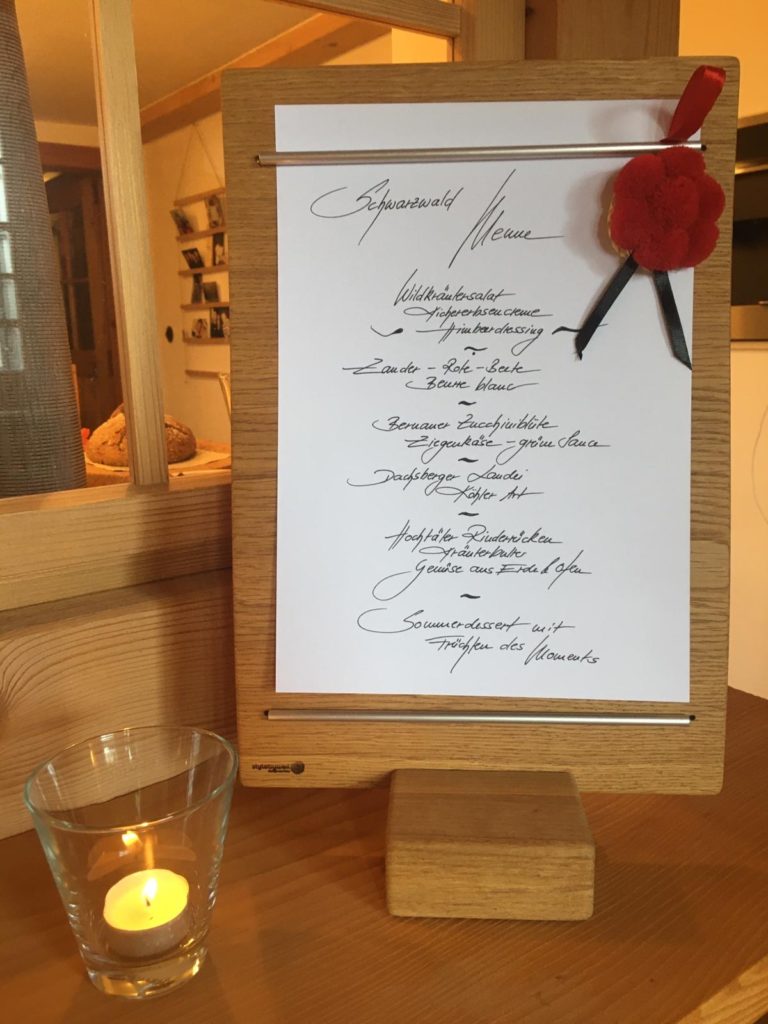 Schwarzwald Menue
Wildkräutersalat
Kichererbsencreme
~ Himbeerdressing ~
~
Zander - Rote - Beete
Beurre blanc
~
Bernauer Zucchiniblüte
Ziegenkäse - grüne Sauce
~
Dachsberger Landei
Köhler Art
~
Hochtäler Rinderrücken
Kräuterbutter
Gemüse aus Erde & Ofen
~
Sommerdessert mit
Früchten des Moments